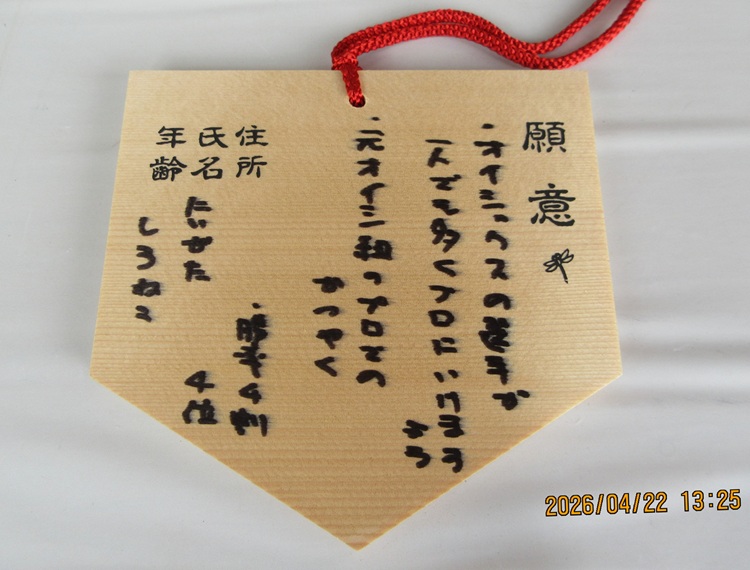 願意
・オイシックスの選手が
一人でも多くプロにいけます
よう
・元オイシ組のプロでの
かつやく
住所
氏名
年齢
・勝率4割
4位
にいがた
しろねこ